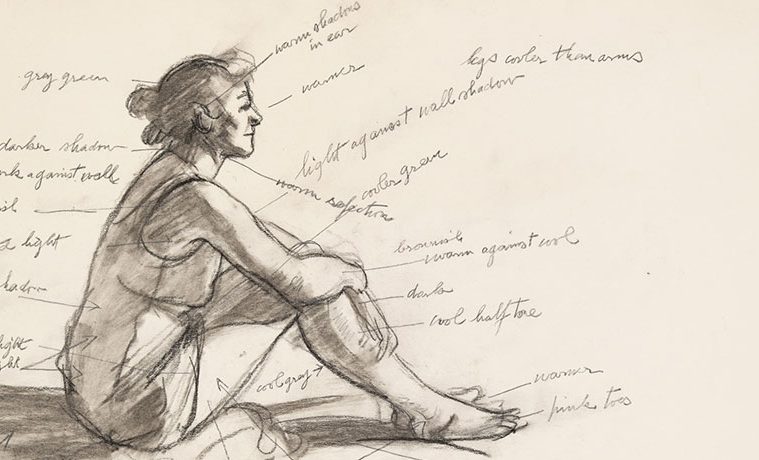 warm shadows
in ear
legs cooler than arms
gray green
warmer
light against wall shadow
darker shadow
cooler green
against wall
warm reflection
light
brownish
warm against cool
dark
cool half tone
light
cool gray
warmer
pink toes